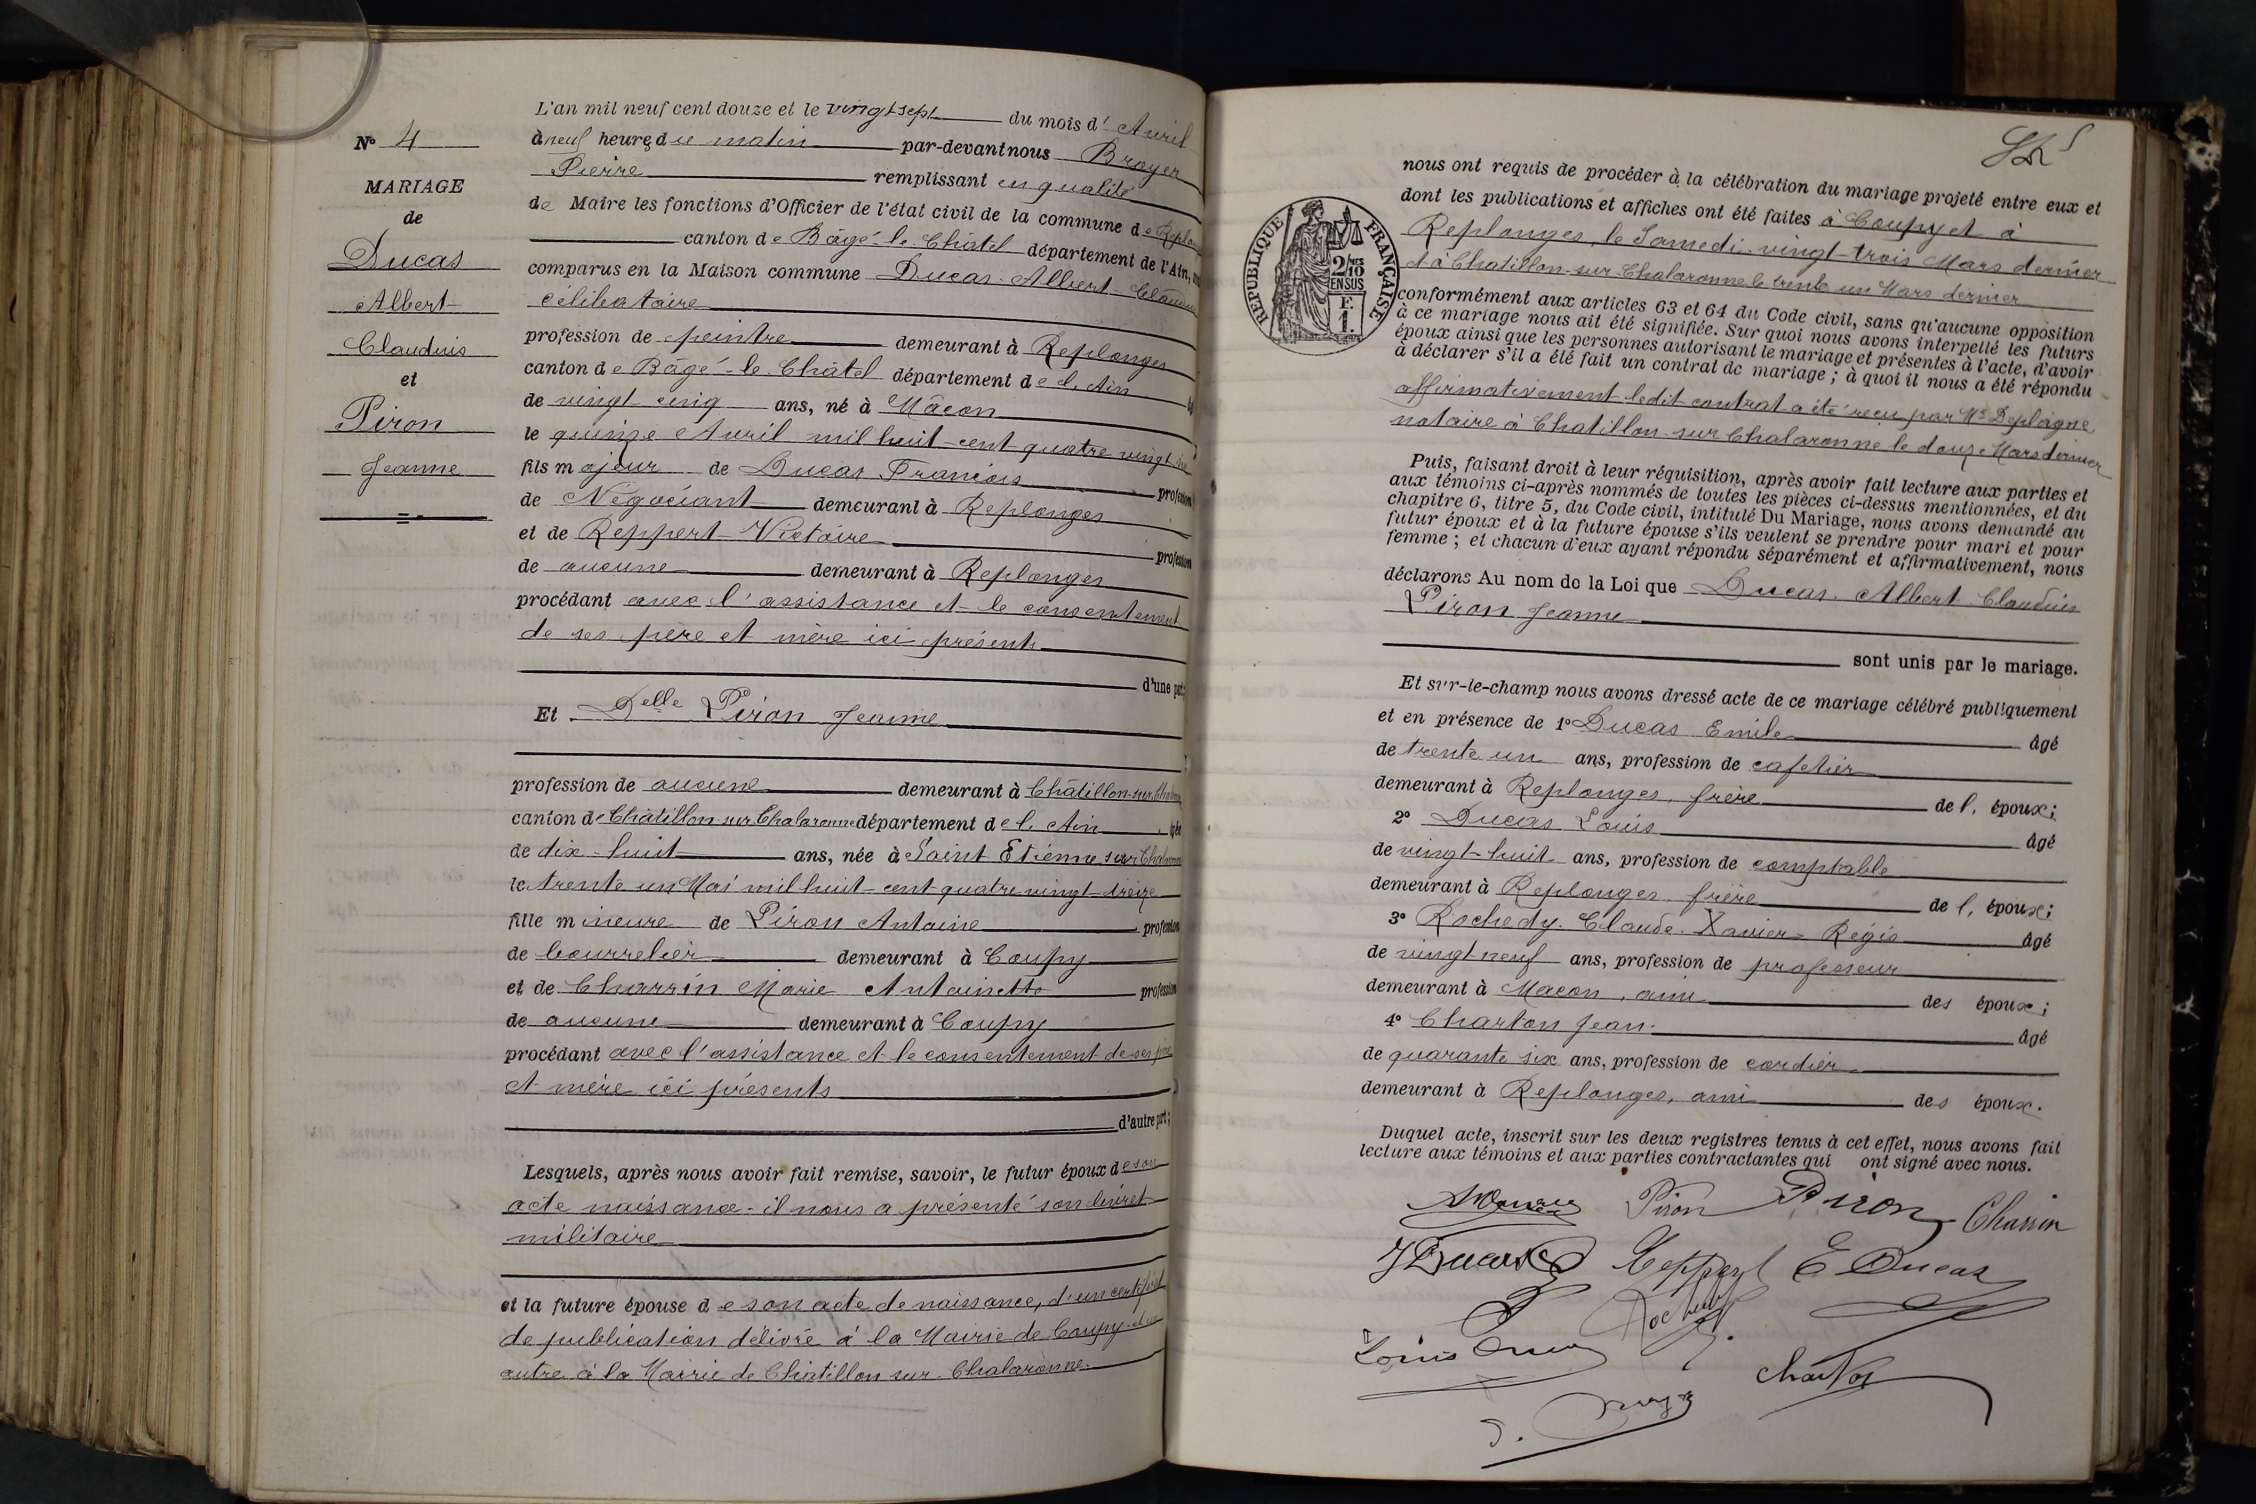 N° 4
MARIAGE
de
Ducas
Albert
Claudius
et
Piron
Jeanne
L'an mil neuf cent douze et le vingt sept du mois d' Avril
à neuf heures du matin par-devant nous Broyer
Pierre remplissant en qualité
de Maire les fonctions d'Officier de l'état civil de la commune de
canton de Bâgé-le-Châtel département de l'Ain,
comparus en la Maison commune Ducas Albert
célibataire
profession de peintre demeurant à Replonges
canton de Bâgé-le-Châtel département de l'Ain
de vingt cinq ans, né à Mâcon
le quinze Avril mil huit-cent quatre vingt
fils majeur de Ducas François profession
de Négociant demeurant à Replonges
et de Reppert Victoire profession
de aucune demeurant à Replonges
procédant avec l'assistance et le consentement
de ses père et mère ici présents
d'une part
Et Delle Piron Jeanne
profession de aucune demeurant à Châtillon-sur
canton de Châtillon-sur Chalaronne département de l'Ain
de dix-huit ans, née à Saint Etienne sur
le trente un Mai mil huit-cent quatre vingt-treize
fille mineure de Piron Antoine profession
de bourrelier demeurant à Coupy
et de Charrin Marie Antoinette profession
de aucune demeurant à Coupy
procédant avec l'assistance et le consentement de ses père
et mère ici présents
d'autre part;
Lesquels, après nous avoir fait remise, savoir, le futur époux de son
acte naissance - il nous a présenté son livret
militaire
et la future épouse de son acte de naissance, d'un certificat
de publication délivré à la Mairie de Coupy
autre à la Mairie de Châtillon sur Chalaronne
nous ont requis de procéder à la célébration du mariage projeté entre eux et
dont les publications et affiches ont été faites à Coupy et à
Replonges, le Samedi vingt-trois Mars dernier
et à Chatillon-sur Chalaronne le trente un Mars dernier
RÉPUBLIQUE FRANÇAISE
2/10 EN SUS
F. 1.
conformément aux articles 63 et 64 du Code civil, sans qu'aucune opposition
à ce mariage nous ait été signifiée. Sur quoi nous avons interpellé les futurs
époux ainsi que les personnes autorisant le mariage et présentes à l'acte, d'avoir
à déclarer s'il a été fait un contrat de mariage; à quoi il nous a été répondu
affirmativement ledit contrat a été reçu par Me
notaire à Chatillon-sur Chalaronne le douze Mars dernier
Puis, faisant droit à leur réquisition, après avoir fait lecture aux parties et
aux témoins ci-après nommés de toutes les pièces ci-dessus mentionnées, et du
chapitre 6, titre 5, du Code civil, intitulé Du Mariage, nous avons demandé au
futur époux et à la future épouse s'ils veulent se prendre pour mari et pour
femme; et chacun d'eux ayant répondu séparément et affirmativement, nous
déclarons Au nom de la Loi que Ducas Albert Claudius
Piron Jeanne
sont unis par le mariage.
Et sur-le-champ nous avons dressé acte de ce mariage célébré publiquement
et en présence de 1° Ducas Emile âgé
de trente un ans, profession de cafetier
demeurant à Replonges, frère de l, époux;
2° Ducas Louis âgé
de vingt-huit ans, profession de comptable
demeurant à Replonges, frère de l, époux;
3° Rochedy Claude Xavier Régis âgé
de vingt neuf ans, profession de professeur
demeurant à Macon, ami des époux;
4° Charton Jean âgé
de quarante six ans, profession de cordier
demeurant à Replonges, ami des époux.
Duquel acte, inscrit sur les deux registres tenus à cet effet, nous avons fait
lecture aux témoins et aux parties contractantes qui ont signé avec nous.
Piron Piron Charrin
Ducas Reppert E Ducas
Louis Ducas
Charton